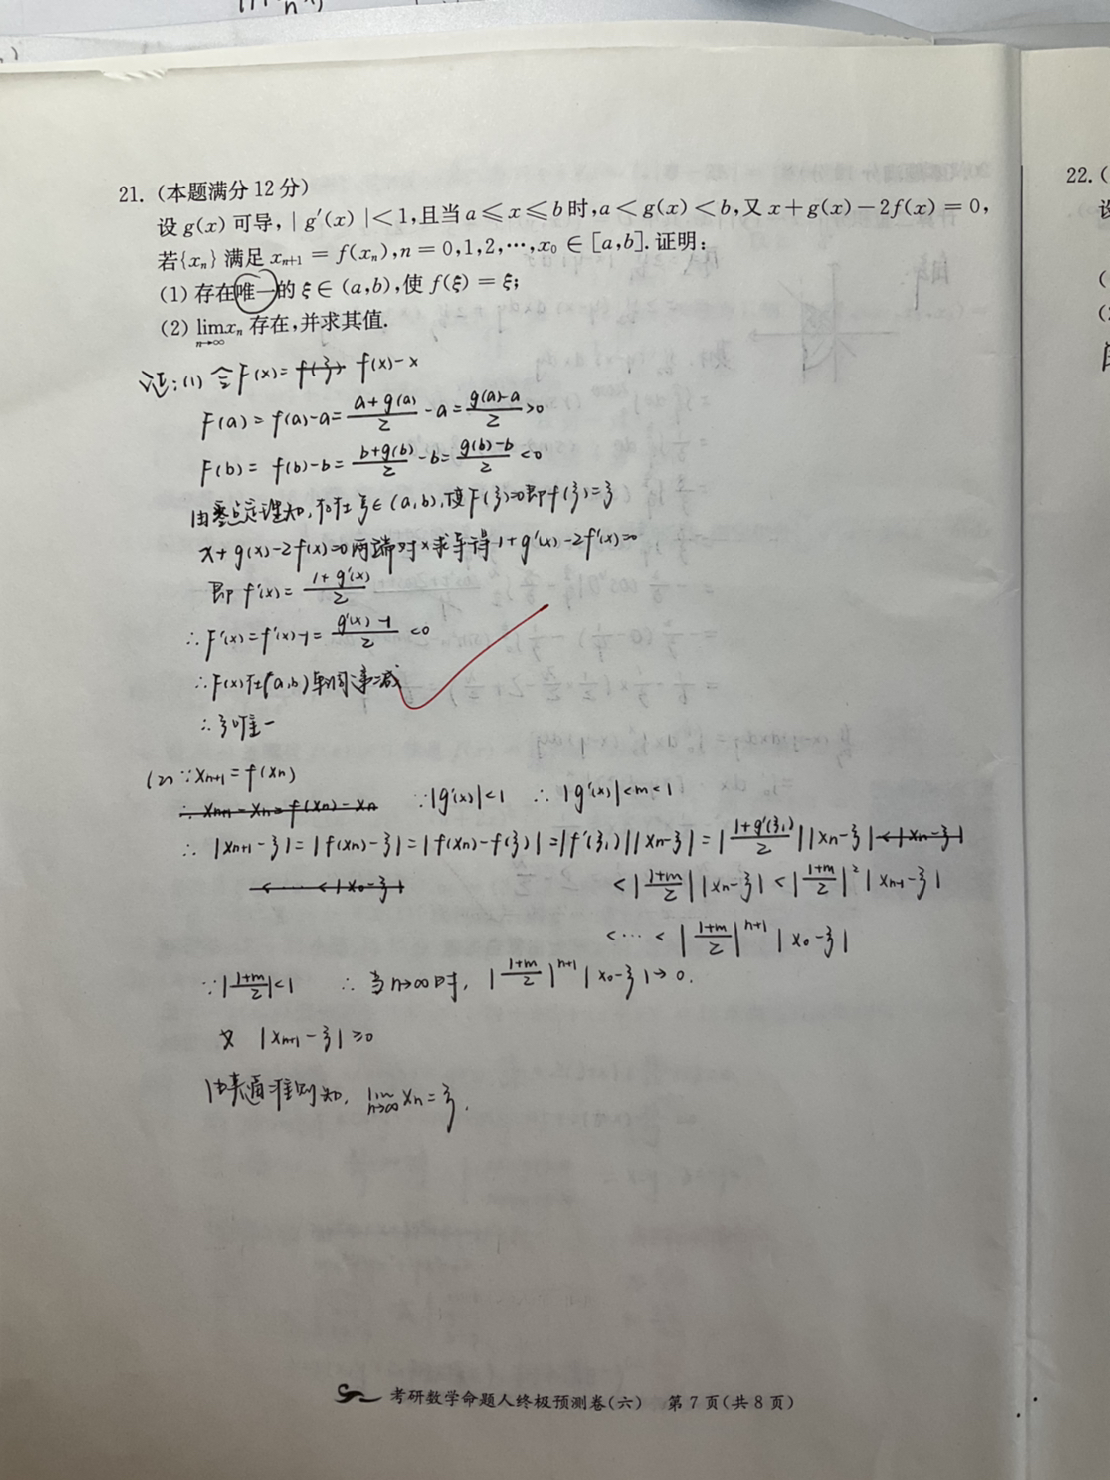 21. (本题满分 12 分)
设 g(x) 可导, | g′(x) | < 1, 且当 a ⩽ x ⩽ b 时, a < g(x) < b, 又 x + g(x) − 2f(x) = 0,
若{xₙ} 满足 xₙ₊₁ = f(xₙ), n = 0,1,2,⋯, x₀ ∈ [a,b]. 证明:
(1) 存在唯一的 ξ ∈ (a,b), 使 f(ξ) = ξ;
(2) lim xₙ 存在, 并求其值.
n→∞
证: (1) 令 F(x) = f(x) − x
F(a) = f(a) − a = (a + g(a))/2 − a = (g(a) − a)/2 > 0
F(b) = f(b) − b = (b + g(b))/2 − b = (g(b) − b)/2 < 0
由零点定理知, 存在 ξ ∈ (a,b), 使 F(ξ) = 0 即 f(ξ) = ξ
x + g(x) − 2f(x) = 0 两端对 x 求导得 1 + g′(x) − 2f′(x) = 0
即 f′(x) = (1 + g′(x))/2
∴ F′(x) = f′(x) − 1 = (g′(x) − 1)/2 < 0
∴ F(x) 在 (a,b) 单调递减
∴ ξ 唯一
(2) ∵ xₙ₊₁ = f(xₙ)
∴ xₙ₊₁ − xₙ = f(xₙ) − xₙ ∵ |g′(x)| < 1 ∴ |g′(x)| < m < 1
∴ |xₙ₊₁ − ξ| = |f(xₙ) − ξ| = |f(xₙ) − f(ξ)| = |f′(ξ₁)| |xₙ − ξ| = |(1 + g′(ξ₁))/2| |xₙ − ξ| < |xₙ − ξ|
< ⋯ < |x₀ − ξ| < |(1+m)/2| |xₙ − ξ| < |(1+m)/2|² |xₙ₋₁ − ξ|
< ⋯ < |(1+m)/2|ⁿ⁺¹ |x₀ − ξ|
∵ |(1+m)/2| < 1 ∴ 当 n→∞ 时, |(1+m)/2|ⁿ⁺¹ |x₀ − ξ| → 0.
又 |xₙ₊₁ − ξ| ≥ 0
由夹逼准则知, lim xₙ = ξ.
n→∞
考研数学命题人终极预测卷(六) 第 7 页(共 8 页)
22. (
设
(
(